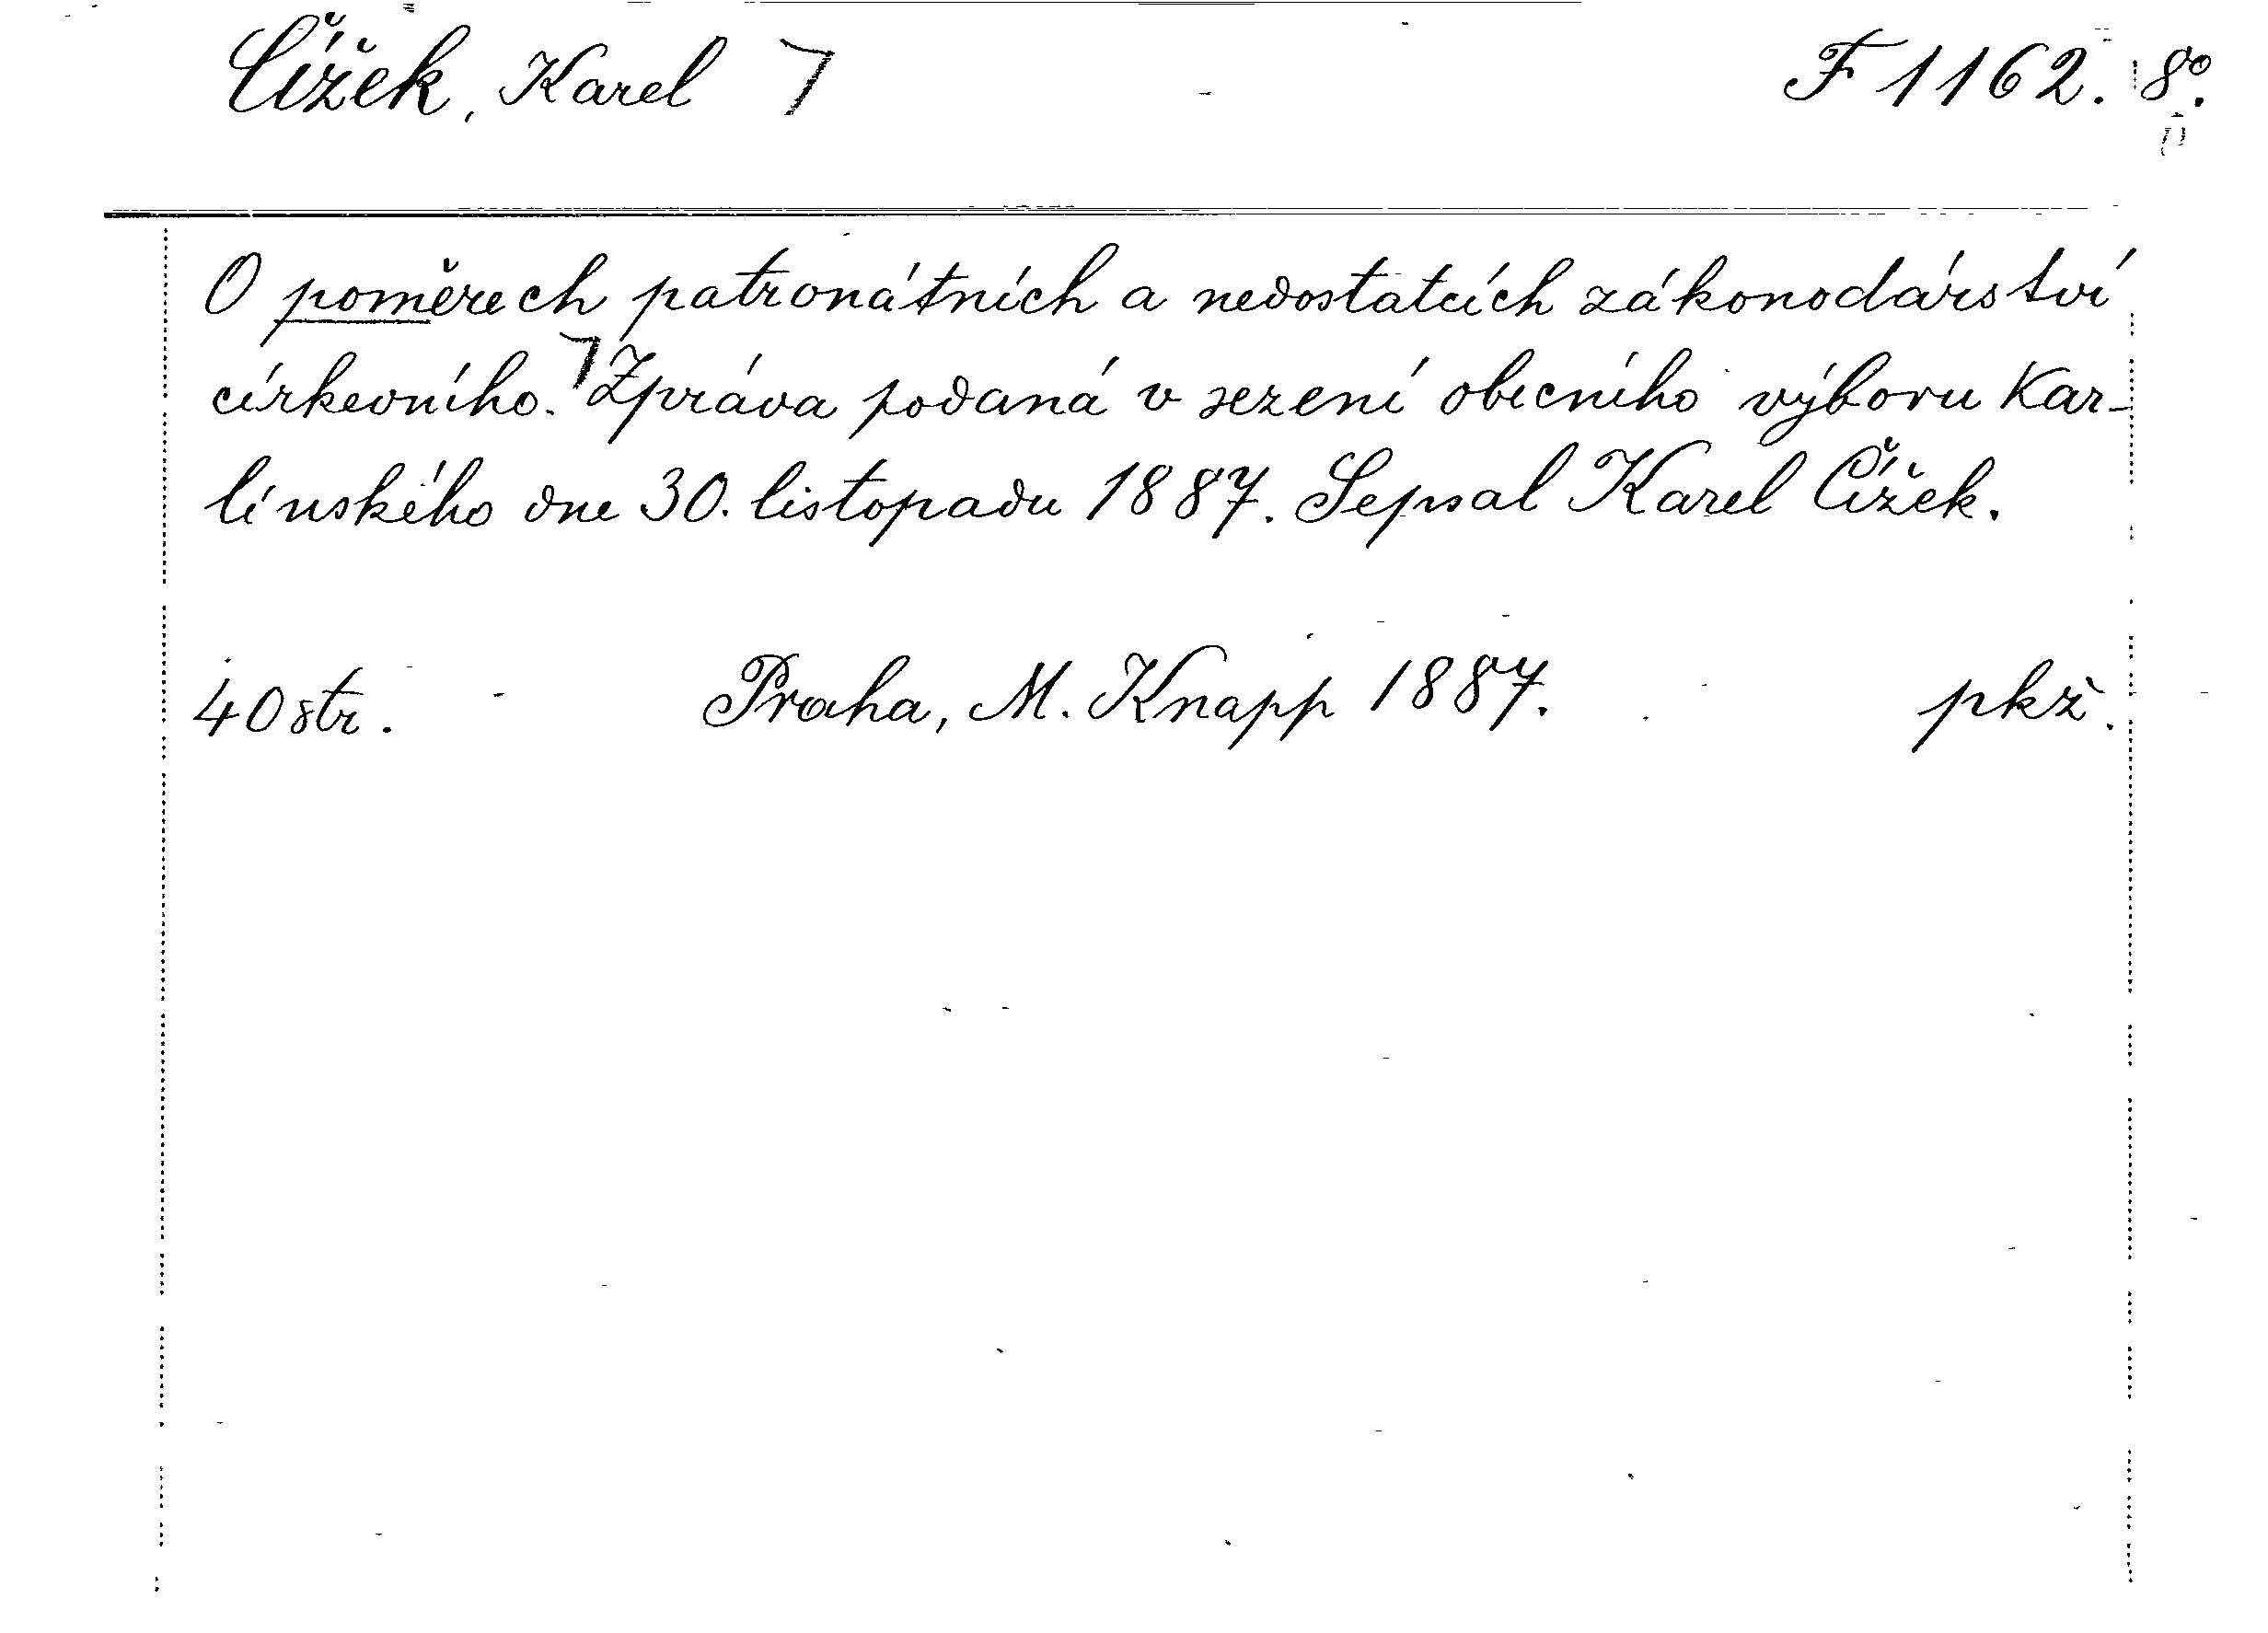 Čížek, Karel F 1162. 8°.
O poměrech patronátních a nedostatcích zákonodárství
církevního. Zpráva podaná v sezení obecního výboru Kar-
línského dne 30. listopadu 1887. Sepsal Karel Čížek.
40 str. Praha, M. Knapp 1887. pkž.